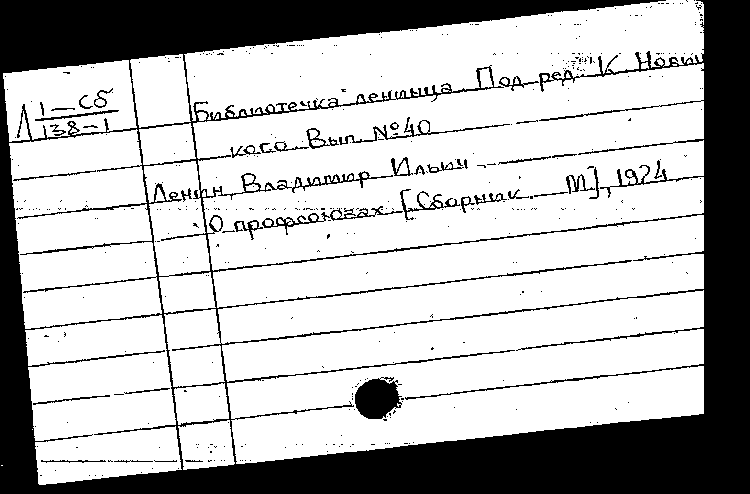 Л 1-Сб
138-1
Библиотечка ленинца. Под ред. К. Нович
кого. Вып. №40
Ленин, Владимир Ильич
О профсоюзах [Сборник. М], 1924